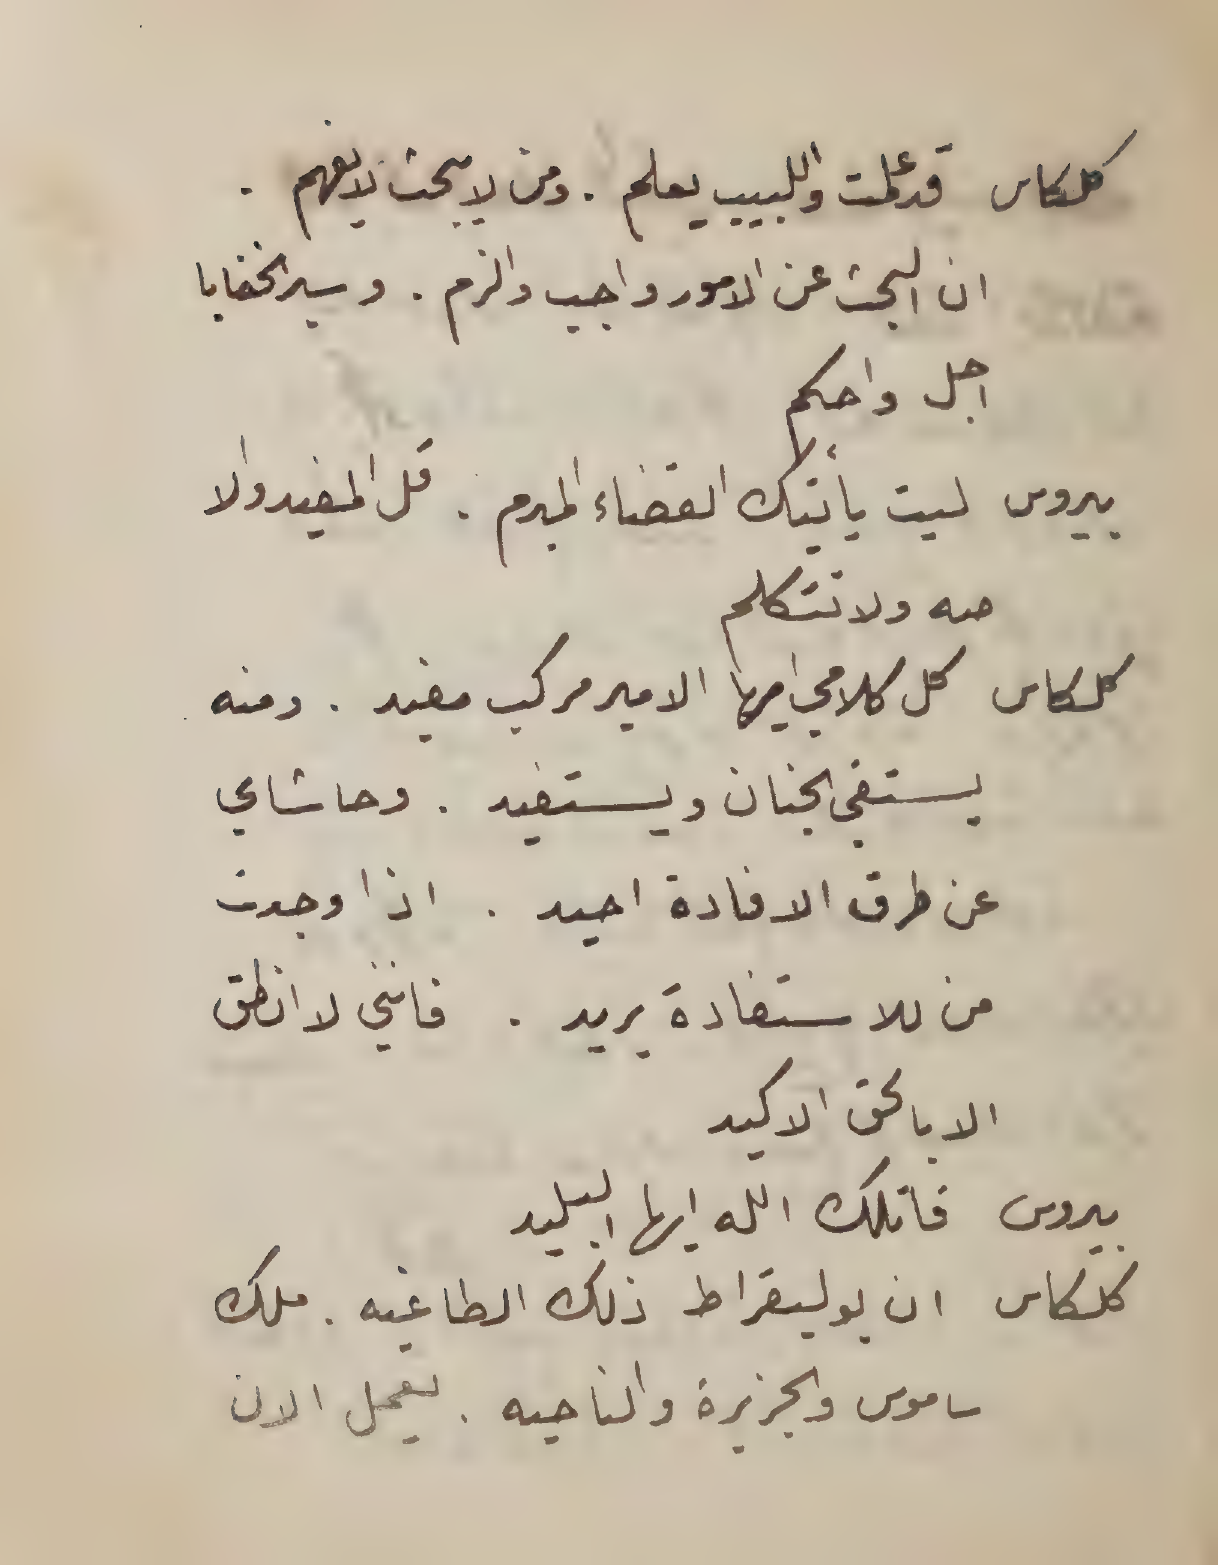 كلكاس قد علمت واللبيب يعلم . ومن لا يبحث لا يفهم .
ان البحث عن الامور واجب والزم . وسير الخفايا
اجل واحكم
بيروس ليت يأتيك القضاء المبرم . قل المفيد والا
صه ولا تتكلم
كلكاس كل كلامي ايها الامير مركب مفيد . ومنه
يستقي الجنان ويستفيد . وحاشاي
عن طرق الافادة احيد . اذا وجدت
من للاستفادة يريد . فانني لا انطق
الا بالحق الاكيد
بيروس قاتلك الله ايها البليد
كلكاس ان بوليقراط ذلك الطاغيه . ملك
ساموس والجزيرة والناحيه . يعمل الان